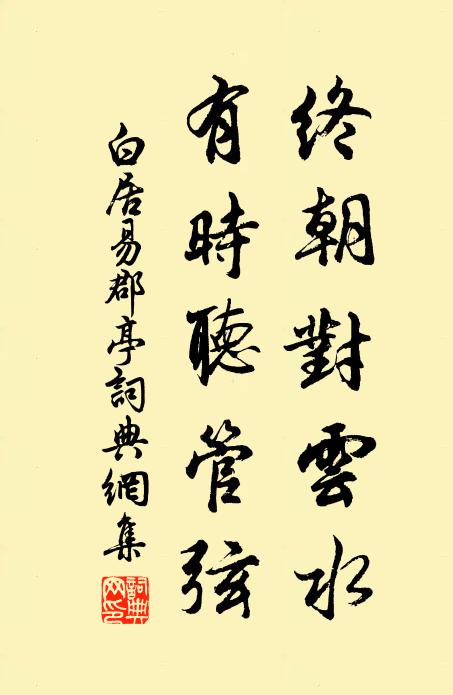 終朝對雲水
有時聽管弦
白居易郡亭詞典網集
詞典網印